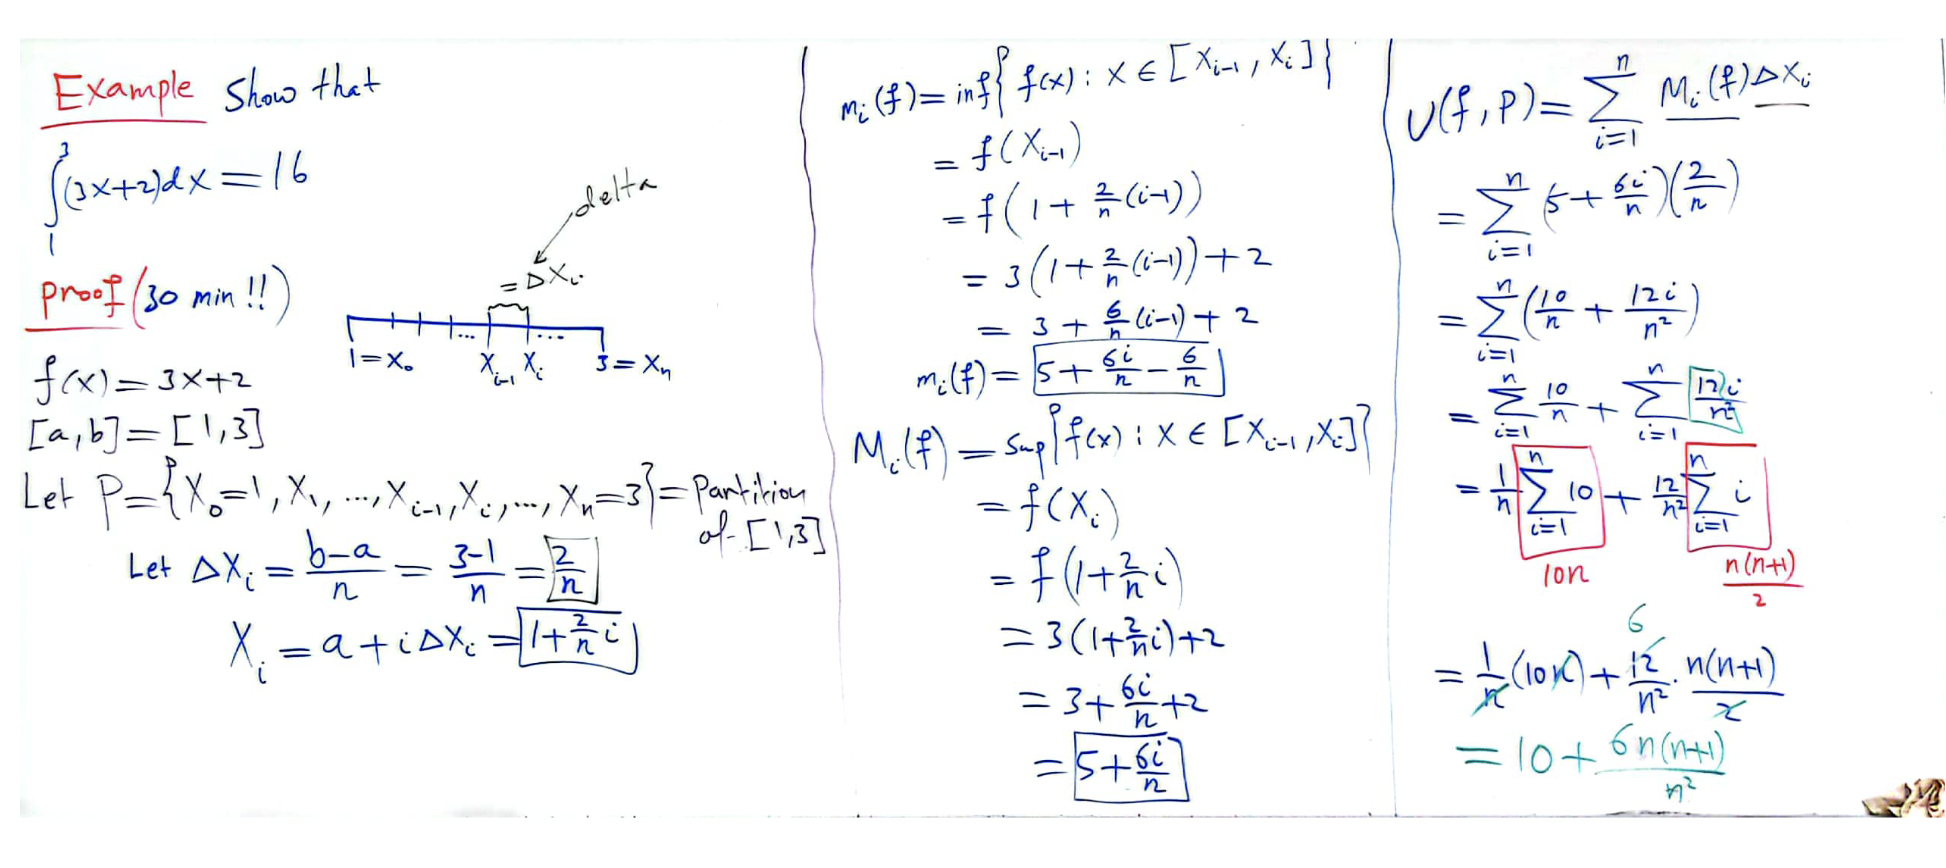 Example Show that
∫₁³ (3x+2)dx = 16
delta
proof (30 min !!)
= Δxᵢ
1 = x₀ ... xᵢ₋₁ xᵢ ... 3 = xₙ
f(x) = 3x+2
[a,b] = [1,3]
Let P = {x₀=1, x₁, ..., xᵢ₋₁, xᵢ, ..., xₙ=3} = Partition
of [1,3]
Let Δxᵢ = (b-a)/n = (3-1)/n = 2/n
xᵢ = a + iΔxᵢ = 1 + 2/n i
mᵢ(f) = inf{f(x) : x ∈ [xᵢ₋₁, xᵢ]}
= f(xᵢ₋₁)
= f(1 + 2/n (i-1))
= 3(1 + 2/n (i-1)) + 2
= 3 + 6/n (i-1) + 2
mᵢ(f) = 5 + 6i/n - 6/n
Mᵢ(f) = sup{f(x) : x ∈ [xᵢ₋₁, xᵢ]}
= f(xᵢ)
= f(1 + 2/n i)
= 3(1 + 2/n i) + 2
= 3 + 6i/n + 2
= 5 + 6i/n
U(f,P) = Σᵢ₌₁ⁿ Mᵢ(f) Δxᵢ
= Σᵢ₌₁ⁿ (5 + 6i/n)(2/n)
= Σᵢ₌₁ⁿ (10/n + 12i/n²)
= Σᵢ₌₁ⁿ 10/n + Σᵢ₌₁ⁿ 12i/n²
= 1/n Σᵢ₌₁ⁿ 10 + 12/n² Σᵢ₌₁ⁿ i
10n n(n+1)/2
6
= 1/n (10n) + 12/n² · n(n+1)/2
= 10 + 6n(n+1)/n²